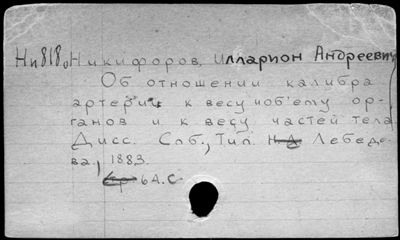 Ни818, Никифоров, Илларион Андреевич
Об отношении калибра
артерий к весу и об'ему ор-
ганов и к весу частей тела.
Дисс. Спб., Тип. Лебеде-
ва, 1883.
64 с.